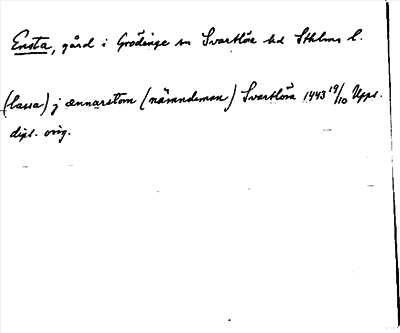 Ensta, gård i Grödinge sn Svartlösa hd Sthlms l.
(lassa) j ænnarstom (nämndeman) Svartlösa 1443 19/10 Upps.
dipl. orig.